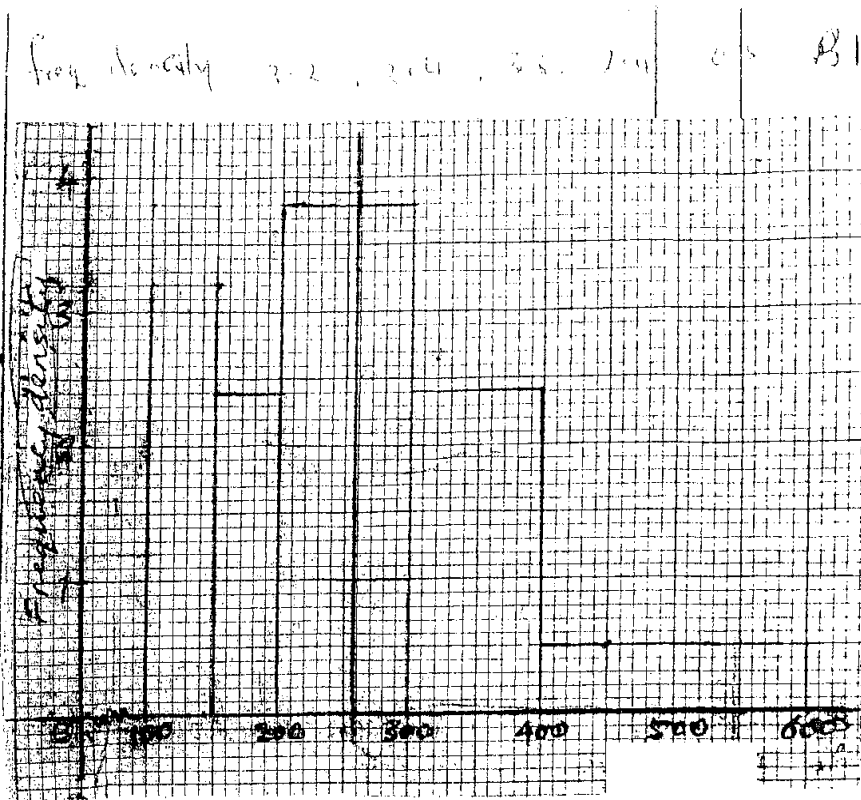 freq density 3.2 2.4 3.8 2.4 0.5 B1
4
3
2
1
Frequency density
0 100 200 300 400 500 600